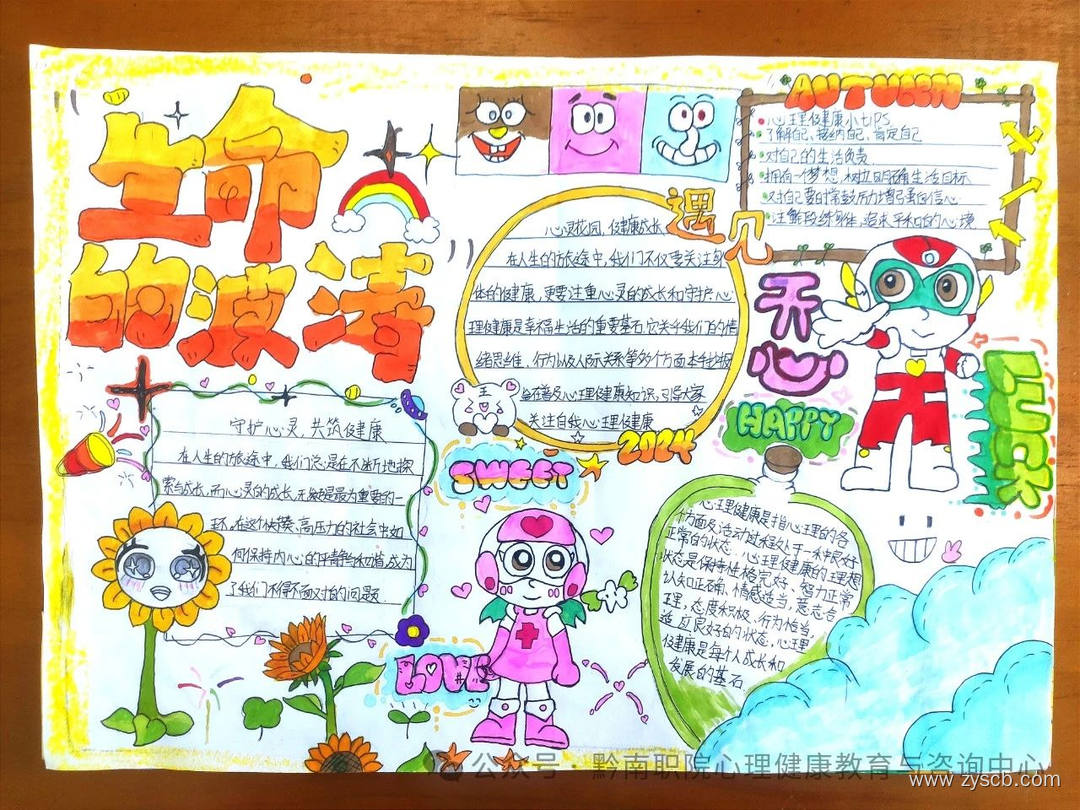 生命
的波涛
AUTUMN
心理健康小tips
了解自己、接纳自己、肯定自己
对自己的生活负责
拥有一个梦想，树立明确生活目标
对自己要时常鼓励增强自信心
注重锻练身体，追求平和的心境
遇见
开心
心灵花园，健康成长
在人生的旅途中，我们不仅要关注身
体的健康，更要注重心灵的成长和守护，心
理健康是幸福生活的重要基石，它关乎我们的情
绪思维、行为以及人际关系等多个方面本手抄报
旨在普及心理健康知识，引导大家
关注自我心理健康
王
2024
SWEET
HAPPY
LUCK
守护心灵，共筑健康
在人生的旅途中，我们总是在不断地探
索与成长，而心灵的成长，无疑是最为重要的一
环，在这个快节奏、高压力的社会中如
何保持内心的平静和谐成为
了我们不得不面对的问题
LOVE
心理健康是指心理的各
个方面及活动过程处于一种良好
正常的状态，心理健康的理想
状态是保持性格完好、智力正常
认知正确、情感适当，意志合
理，态度积极、行为恰当，
适应良好的状态，心理
健康是每个人成长和
发展的基石
公众号·黔南职院心理健康教育与咨询中心
www.zyscb.com